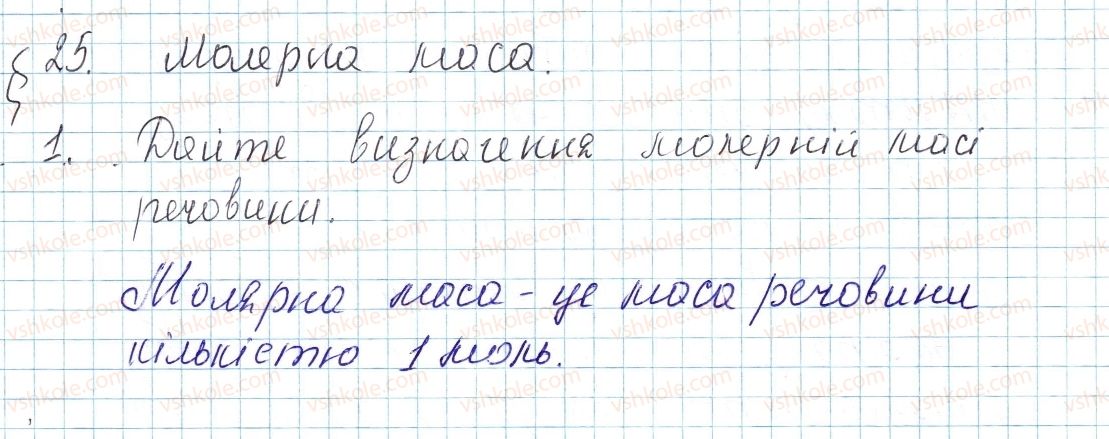 § 25. Молярна маса.
1. Дайте визначення молярній масі
речовини.
Молярна маса - це маса речовини
кількістю 1 моль.